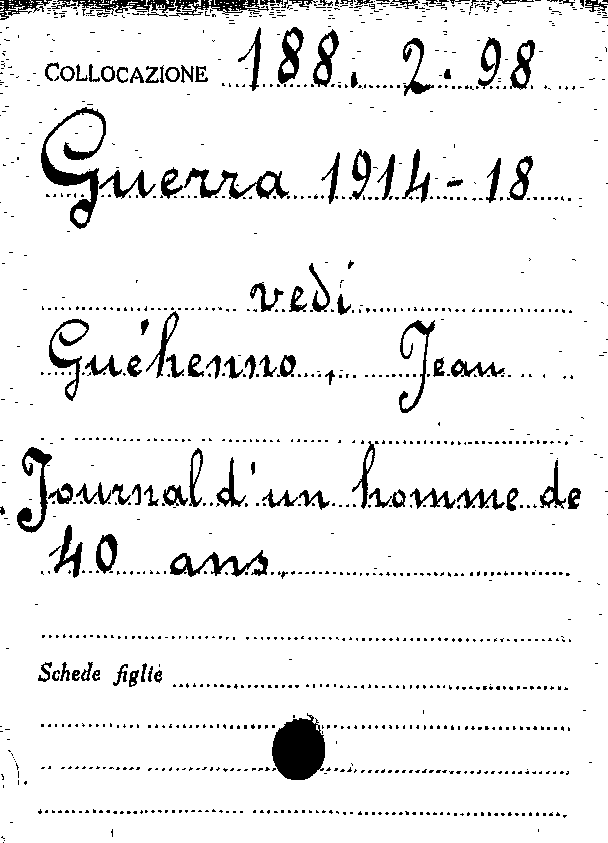 COLLOCAZIONE 188. 2. 98
Guerra 1914-18
vedi
Guéhenno, Jean
Journal d'un homme de
40 ans.
Schede figlie